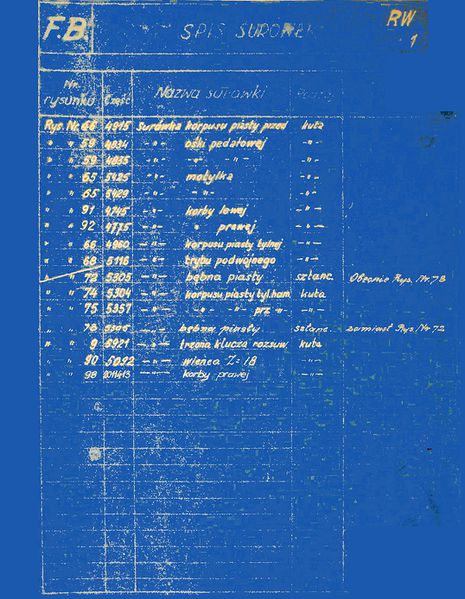 F.B. SPIS SURÓWEK RW
1
Nr.
rysunku Część Nazwa surówki
Rys. Nr. 66 4915 Surówka korpusu piasty przed kuta
" " 59 4834 -"- ośki pedałowej -"-
" " 59 4835 -"- -"- -"- -"-
" " 65 5425 -"- motylka -"-
" " 65 5429 -"- -"- -"-
" " 91 4745 -"- korby lewej -"-
" " 92 4775 -"- " prawej -"-
" " 66 4960 -"- korpusu piasty tylnej -"-
" " 68 5116 -"- trybu podwójnego -"-
" " 72 5305 -"- bębna piasty sztanc. Obecnie Rys. Nr. 78
" " 74 5304 -"- korpusu piasty tyl. ham. kuta
" " 75 5357 -"- -"- -"- prz -"- -"-
" " 78 -"- bębna piasty sztanc. zamiast Rys. Nr 72
" " 9 6921 -"- trzona klucza rozsuw. kuta
" 90 5092 -"- wieńca Z=18 -"-
" 98 -"- korby prawej -"-